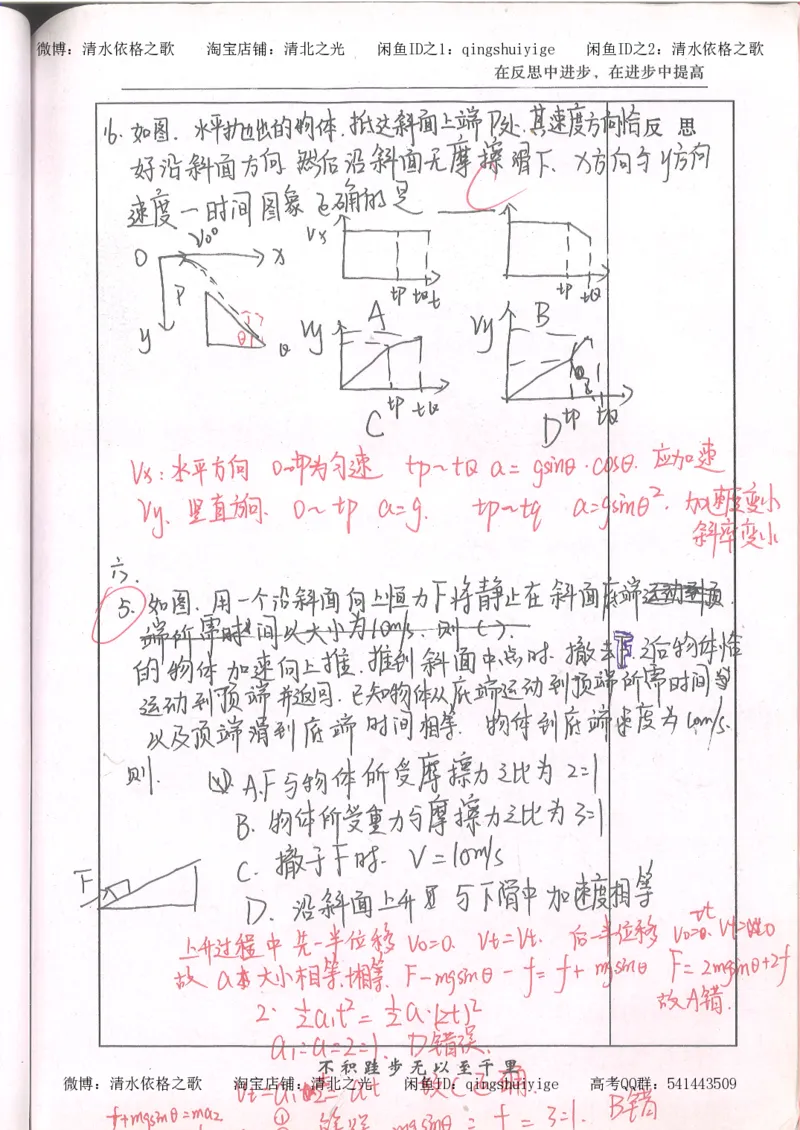 微博：清水依格之歌 淘宝店铺：清北之光 闲鱼ID之1：qingshuiyige 闲鱼ID之2：清水依格之歌
在反思中进步，在进步中提高
反 思
16. 如图. 水平抛出的物体. 抵达斜面上端P处. 其速度方向恰
好沿斜面方向. 然后沿斜面无摩擦滑下. x方向与y方向
速度一时间图象正确的是 C
O V0 x
P
y θ Q
Vx tp tQ t
A
tp tQ
B
Vy tp tQ
C
Vy tp tQ
D
Vx: 水平方向 0~tp为匀速 tp~tQ a= gsinθ·cosθ. 应加速
Vy. 竖直方向. 0~tp a=g. tp~tq a=gsinθ². 加速度变小
斜率变小
六.
5. 如图. 用一个沿斜面向上恒力F将静止在斜面底端
的物体加速向上推. 推到斜面中点时. 撤去F 之后物体恰
运动到顶端并返回. 已知物体从底端运动到顶端所需时间
以及顶端滑到底端时间相等. 物体到底端速度为10m/s.
则.
A. F与物体所受摩擦力之比为 2=1
B. 物体所受重力与摩擦力之比为 3=1
C. 撤于F时. V=10m/s
D. 沿斜面上升 与下滑中加速度相等
F
上升过程中 先一半位移 V0=0. Vt=Vt. 后一半位移 V0=Vt Vt=0
故 a 大小相等. F-mgsinθ-f=f+mgsinθ F=2mgsinθ+2f
故A错.
2. ½a₁t²=½a·(2t)²
a₁=a=2=1. D错误.
不积跬步无以至千里
微博：清水依格之歌 淘宝店铺：清北之光 闲鱼ID：qingshuiyige 高考QQ群：541443509
故C正确
f+mgsinθ=ma₂ ① f=3=1. B错